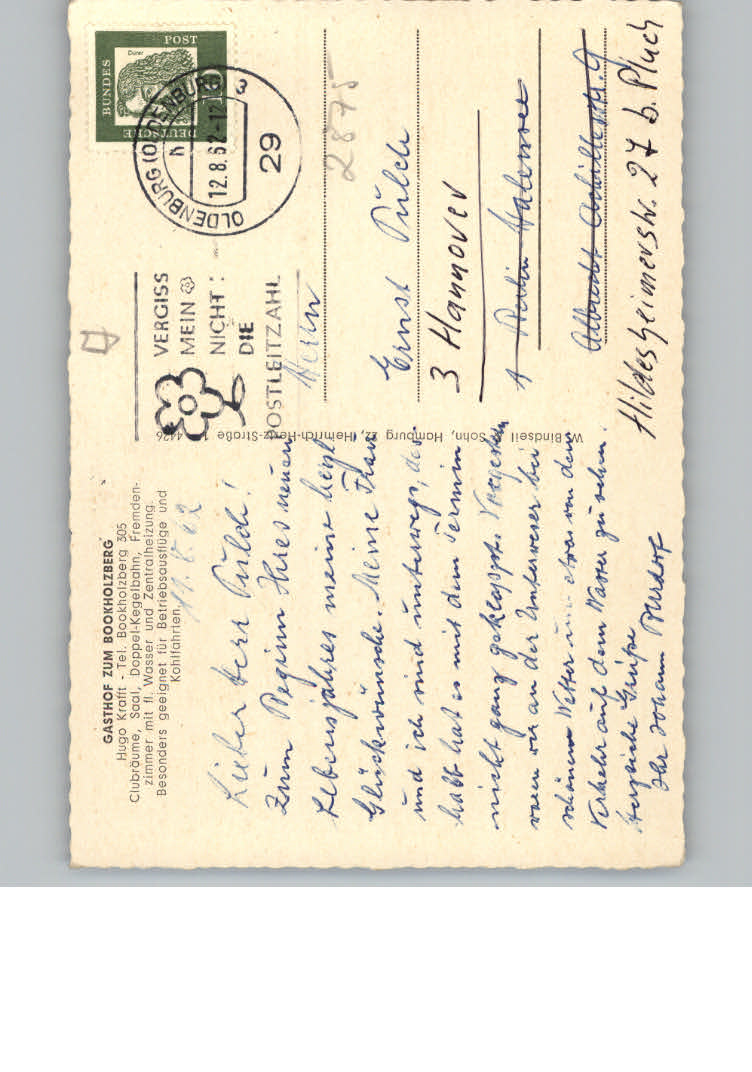 GASTHOF ZUM BOOKHOLZBERG
Hugo Krafft - Tel. Bookholzberg 305
Clubräume, Saal, Doppel-Kegelbahn, Fremden-
zimmer mit fl. Wasser und Zentralheizung.
Besonders geeignet für Betriebsausflüge und
Kohlfahrten.
11.8.62
Lieber Herr Pülch!
Zum Beginn Ihres neuen
Lebensjahres meine herzl.
Glückwünsche. Meine Frau
und ich sind unterwegs, des-
halb hat es mit dem Termin
nicht ganz geklappt. Vorgestern
waren wir an der Unterweser bei
schönem Wetter um etwas von dem
Verkehr auf dem Wasser zu sehen.
Herzliche Grüße
Ihr Johann
W. Bindseil Sohn, Hamburg 22, (Heinrich-Hertz-Straße
4426
DEUTSCHE
BUNDES
POST
Dürer
OLDENBURG (OLDENBURG) 3
h
12.8.62-12
29
VERGISS
MEIN
NICHT:
DIE
POSTLEITZAHL
2875
Herrn
Ernst Pülch
3 Hannover
1 Berlin Halensee
Albrecht Achillesstr. 9
Hildesheimerstr. 27 b. Pluch